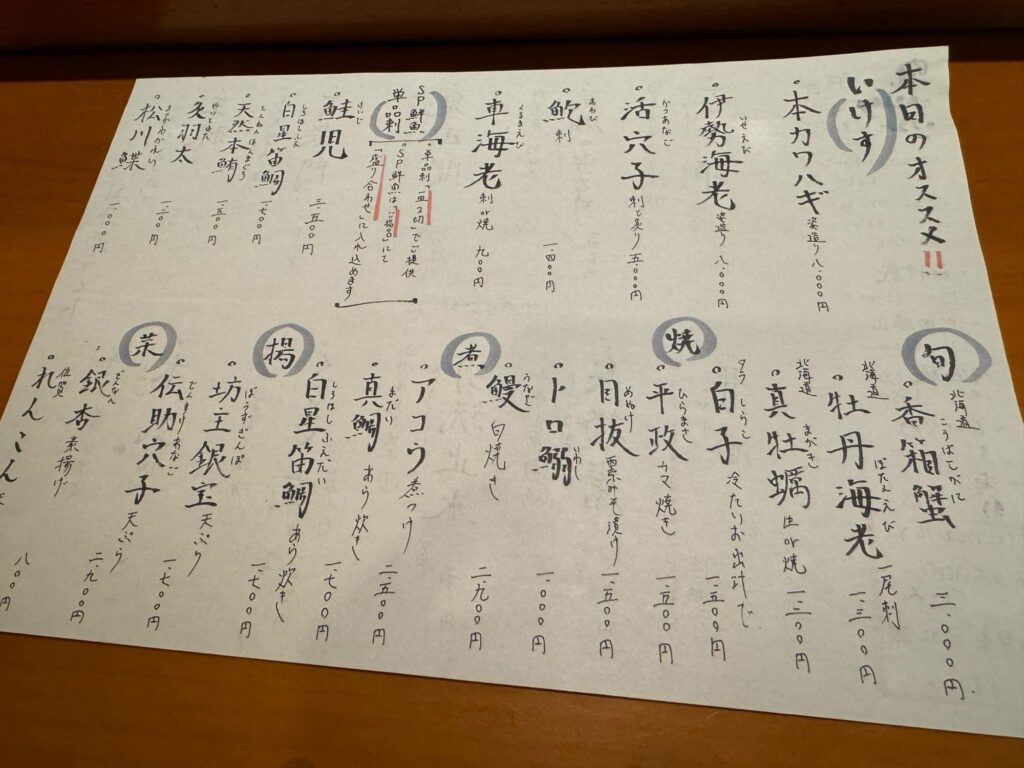 本日のオススメ!!
いけす
・本カワハギ 姿造り 八.〇〇〇円
・伊勢海老 いせえび 姿造り 八.〇〇〇円
・活穴子 かつあなご 刺と炙り 五.〇〇〇円
・鮑 あわび 刺 一.四〇〇円
・車海老 くるまえび 刺or焼 九〇〇円
SP鮮魚
単品刺
・単品刺「一皿2切」でご提供
・SP鮮魚は「ご指名」にて
「盛り合わせ」に入れ込めます
・鮭児 けいじ 三.五〇〇円
・白星笛鯛 しろほしふえ 一.七〇〇円
・天然本鮪 てんねんほんまぐろ 一.五〇〇円
・炙羽太 一.二〇〇円
・松川鰈 まつかわかれい 一.〇〇〇円
旬
・北海道 香箱蟹 こうばこがに 三.〇〇〇円
・北海道 牡丹海老 ぼたんえび 一尾刺 一.三〇〇円
・北海道 真牡蠣 まがき 生or焼 一.二〇〇円
・タラ 白子 しらこ 冷たいお出汁で 一.五〇〇円
焼
・平政 ひらまさ カマ焼き 一.五〇〇円
・目抜 めぬけ 粟みそ漬け 一.五〇〇円
・トロ鰯 いわし 一.〇〇〇円
・鰻 うなぎ 白焼き 二.九〇〇円
煮
・アコウ 煮つけ 二.五〇〇円
・真鯛 まだい あら炊き 一.七〇〇円
・白星笛鯛 しろほしふえだい あら炊き 一.七〇〇円
揚
・坊主銀宝 ぼうずぎんぽ 天ぷら 一.七〇〇円
・伝助穴子 でんすけあなご 天ぷら 二.九〇〇円
菜
・銀杏 ぎんなん 素揚げ 八〇〇円
・佐賀 れんこん